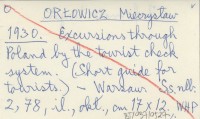 ORŁOWICZ Mieczysław
1930. Excursions through
Poland by the tourist check
system. (Short guide for
tourists). – Warsaw
2, 78, il., okł., cm 17 x 12. WHP